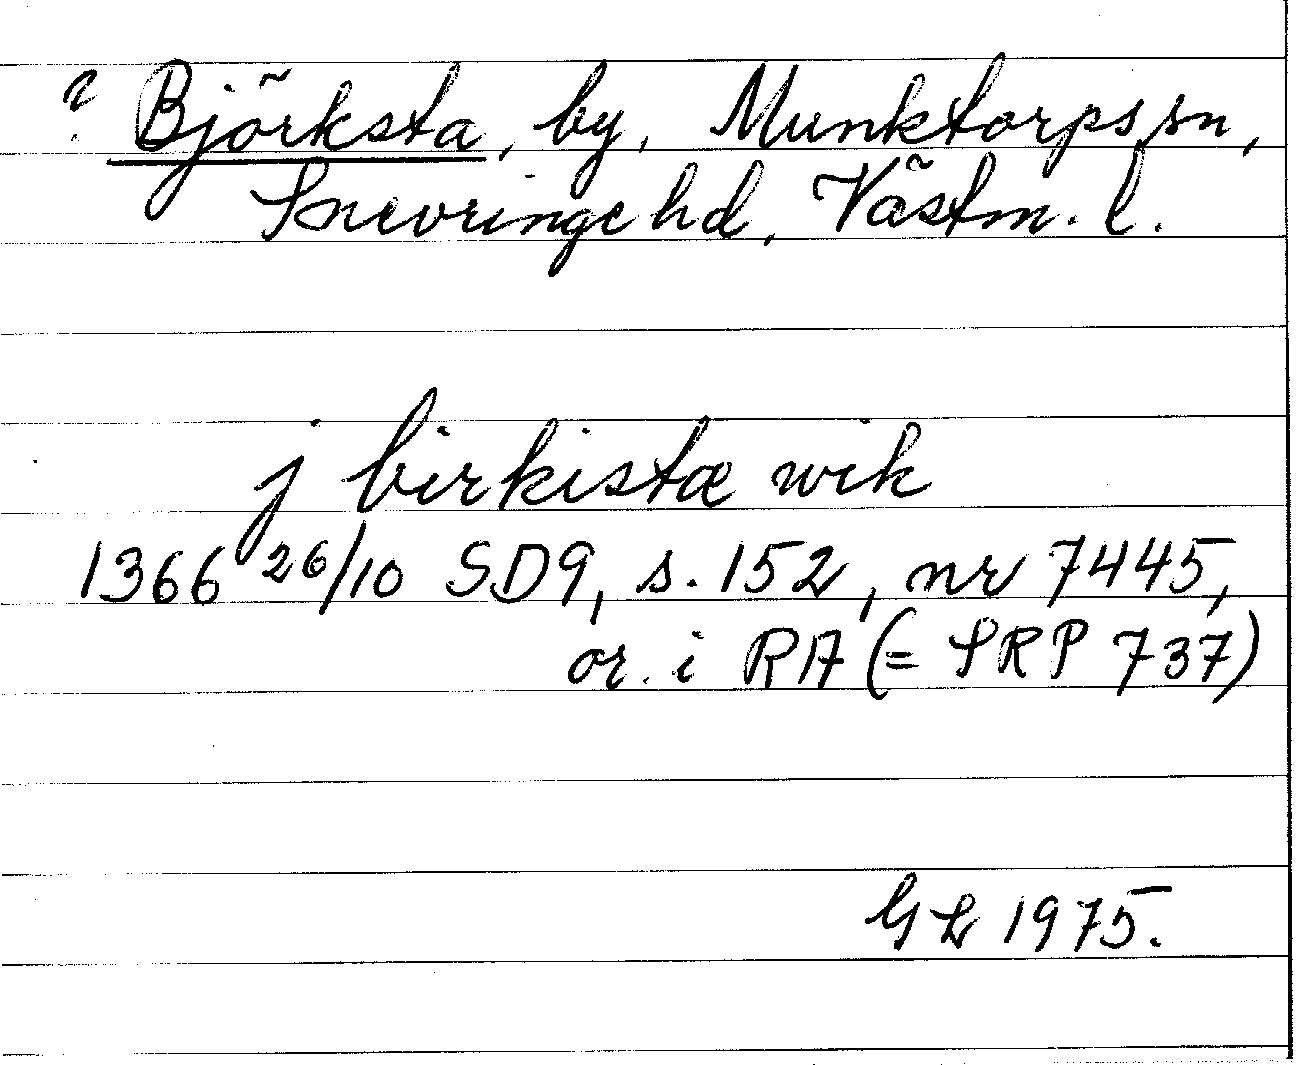 ? Björksta, by, Munktorps sn,
Snevringe hd, Västm. l.
j birkistæ wik
1366 26/10 SD9, s. 152, nr 7445,
or. i RA (= SRP 737)
GL 1975.